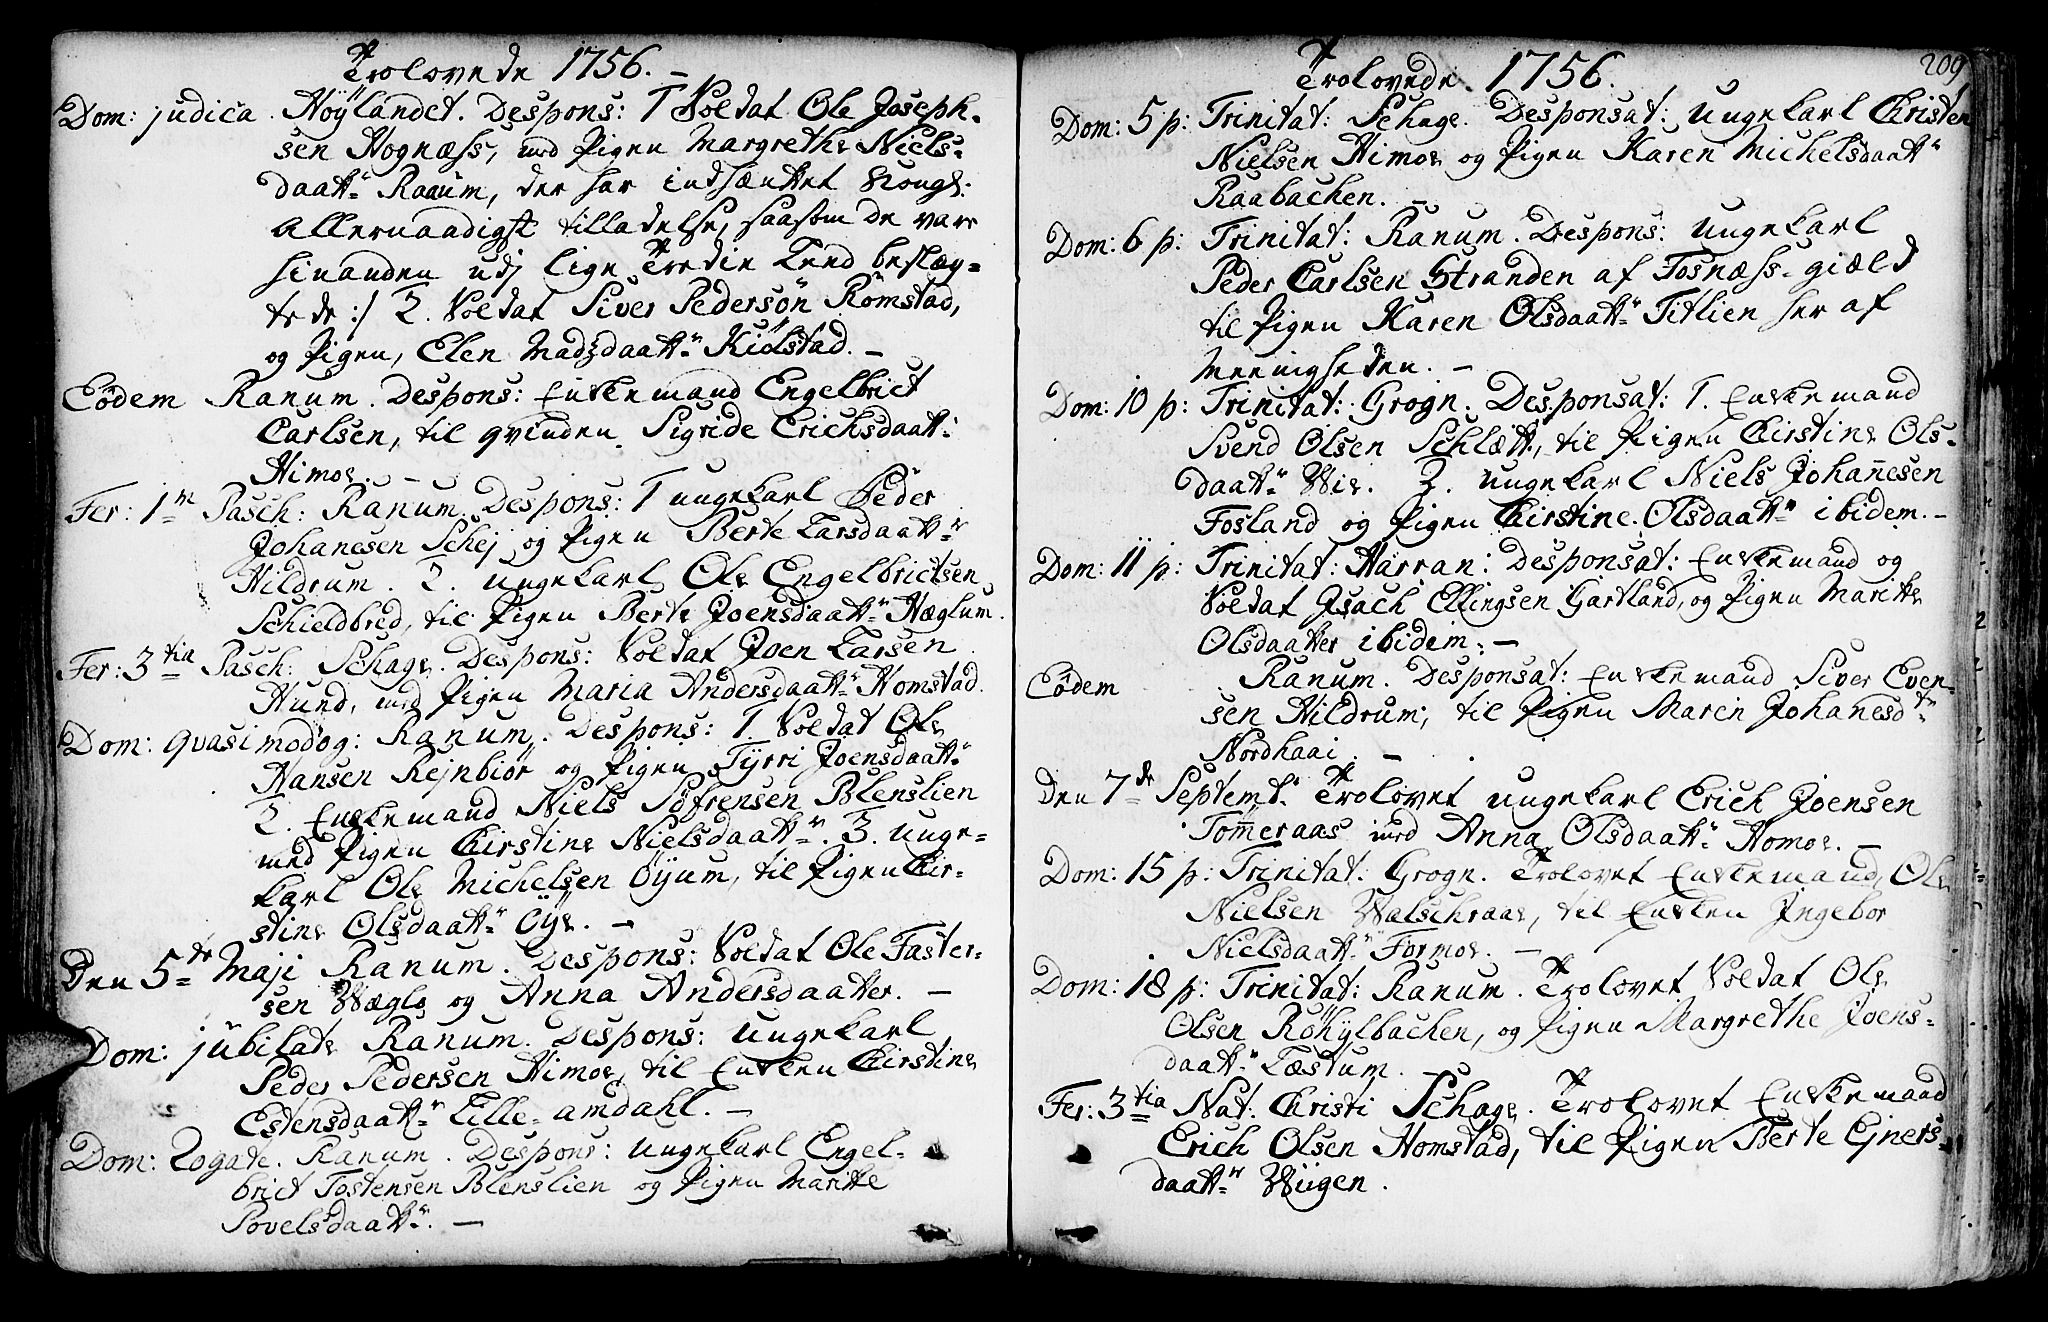 Trolovede 1756. –
Dom: judica. Høÿlandet. Despons: 1 Soldat Ole Joseph-
sen Hognæss, med Pigen Margrethe Niels-
daattr Raaum, der har indhæntet Kongl:
Allernaadigst tilladelse, saasom de vare
hinanden udj lige Tredie Leed beslæg-
tede :/ 2. Soldat Siver Pedersøn Römstad,
og Pigen, Elen Madsdaattr Kiölstad. –
Eödem Ranum. Despons: Enkemand Engelbrict
Carlsen, til qvinden Sigride Erichsdaatt:
Himoe. –
Fer: 1m Pasch: Ranum. Despons: 1 ungekarl Peder
Johanesen Schej og Pigen Berte Larsdaattr
Hildrum. 2. ungekarl Ole Engelbrictsen
Schieldbred, til Pigen Berte Joensdaattr Hæglum.
Fer: 3tia Pasch: Schage. Despons: Soldat Joen Larsen
Hund, med Pigen Maria Andersdaattr Homstad.
Dom: qvasimodog: Ranum. Despons: 1. Soldat Ole
Hansen Rejnbiör og Pigen Tÿrri Joensdaattr
2. Enkemand Niels Söfrensen Blenslien
med Pigen Kirstine Nielsdaattr. 3. unge-
karl Ole Michelsen Öÿum, til Pigen Kir-
stine Olsdaattr Öÿe. –
Den 5te Maji Ranum. Despons: Soldat Ole Faster-
sen Wægle og Anna Andersdaatter. –
Dom: jubilate Ranum. Despons: ungekarl
Peder Pedersen Himoe, til Enken Kirstine
Estensdaattr Lille-amdahl. –
Dom: Rogate. Ranum. Despons: ungekarl Engel-
brict Tostensen Blenslien og Pigen Maritte
Povelsdaattr. –
Trolovede 1756. 209
Dom: 5 p: Trinitat: Schage. Desponsat: ungekarl Christen
Nielsen Himoe og Pigen Karen Michelsdaattr
Raabachen. –
Dom: 6 p: Trinitat: Ranum. Despons: ungekarl
Peder Carlsen Stranden af Fosnæss-giæld
til Pigen Karen Olsdaattr Titlien her af
Meenigheden. –
Dom: 10 p: Trinitat: Grogn. Desponsat: 1. Enkemand
Svend Olsen Schlætt, til Pigen Kirstine Ols-
daattr Wie. 2. ungekarl Niels Johannesen
Fosland og Pigen Kirstine Olsdaattr ibidem. –
Dom: 11 p: Trinitat: Harran: Desponsat: Enkemand og
Soldat Jsach Ellingsen Gartland, og Pigen Maritte
Olsdaatter ibidem. –
Eödem Ranum. Desponsat: Enkemand Siver Even-
sen Hildrum, til Pigen Maren Johanesdtr
Nordhaai. –
Den 7de Septembr Trolovet ungekarl Erich Joensen
Tommeraas med Anna Olsdaattr Homoe. –
Dom: 15 p: Trinitat: Grogn. Trolovet Enkemand, Ole
Nielsen Walschraae, til Enken Jngebor
Nielsdaattr Formoe. –
Dom: 18 p: Trinitat: Ranum. Trolovet Soldat Ole
Olsen Röhÿlbachen, og Pigen Margrethe Joens-
daattr Læstum. –
Fer: 3tia Nat: Christi Schage. Trolovet Enkemand
Erich Olsen Homstad, til Pigen Berte Ejners-
daattr Wiigen.